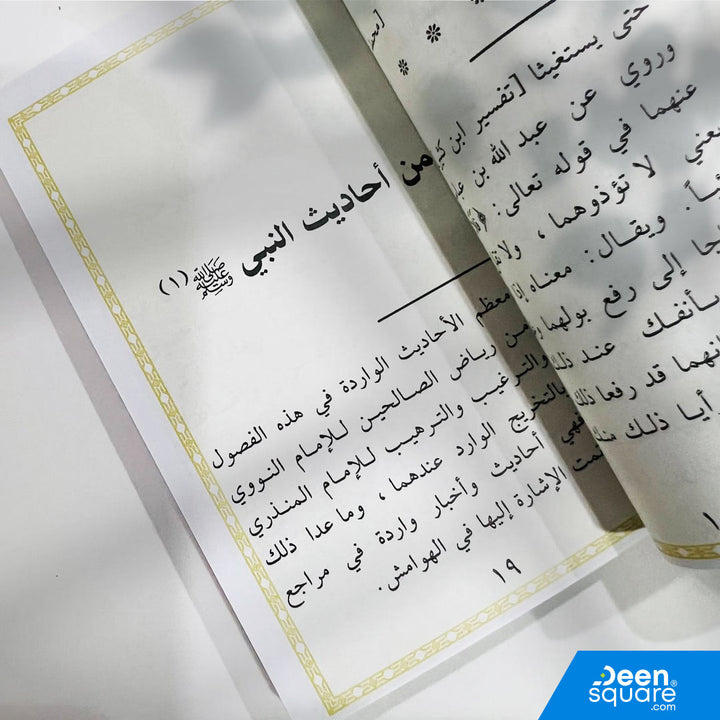 من أحاديث النبي ﷺ (١)
معظم الأحاديث الواردة في هذه الفصول
من رياض الصالحين للإمام النووي
والترغيب والترهيب للإمام المنذري
بالتخريج الوارد عندهما، وما عدا ذلك
فهي أحاديث وأخبار واردة في مراجع
تمت الإشارة إليها في الهوامش.
١٩
حتى يستغيثا [تفسير ابن
وروي عن عبد الله بن
عنهما في قوله تعالى:
لا تؤذوهما، ولا
ويقال: معناه إذا
إلى رفع بولهما
بأنفك عند ذلك
قد رفعا ذلك
أيا ذلك منك
Deen
square®
.com